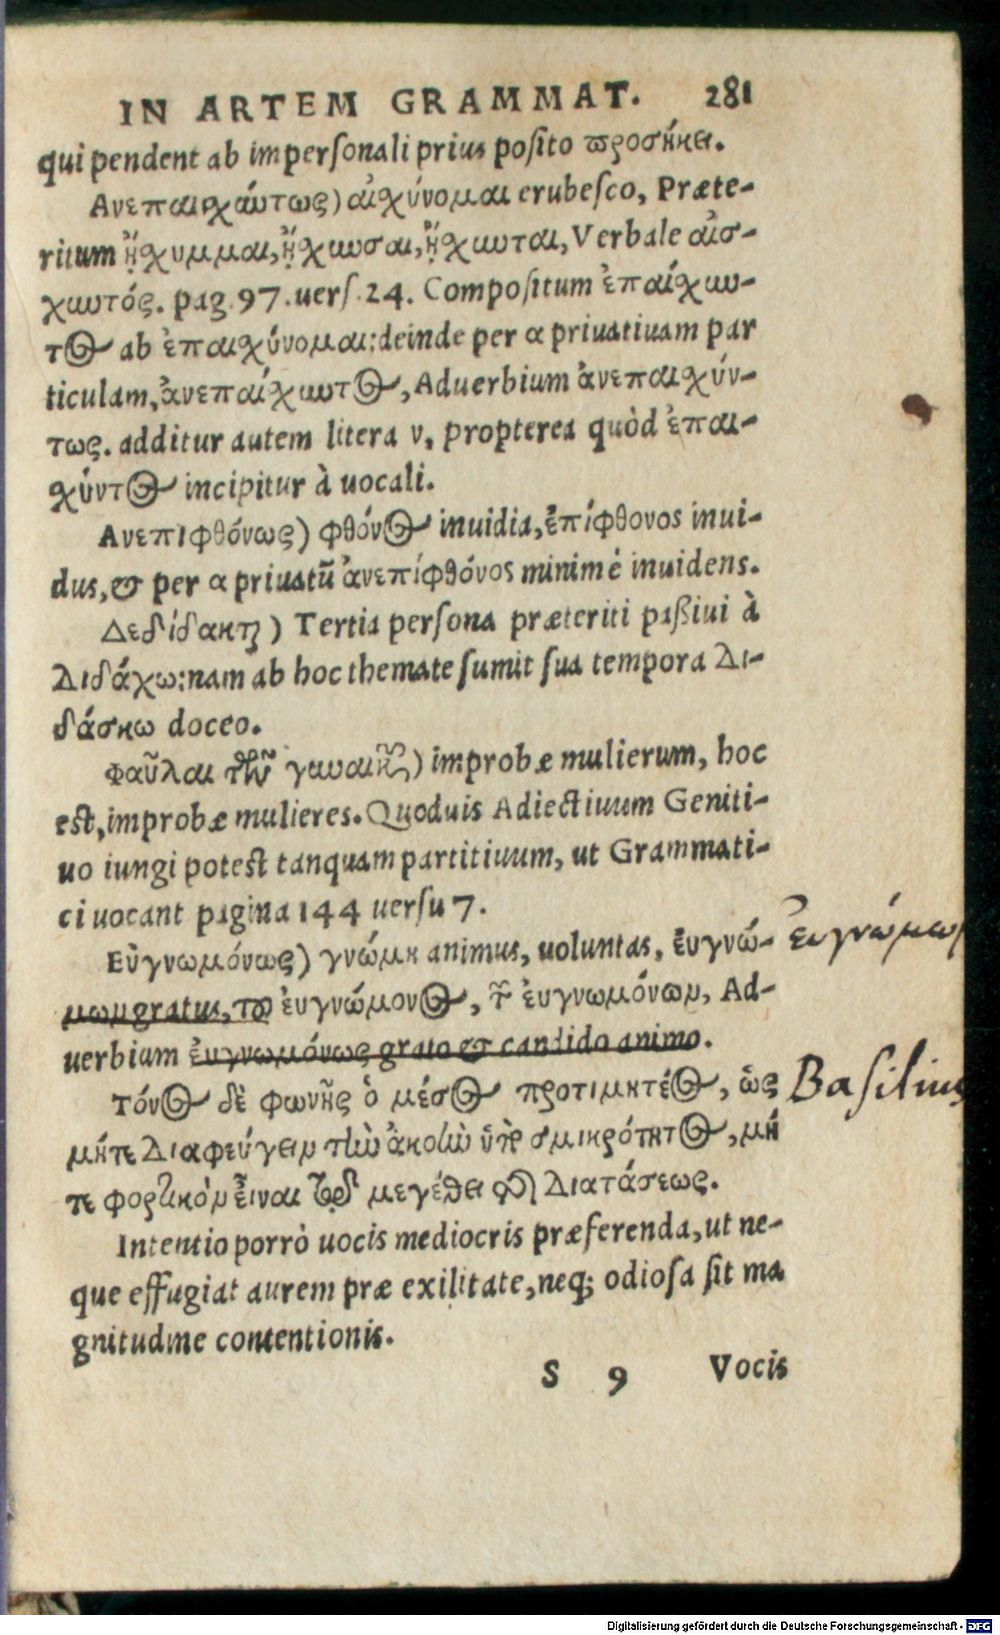 IN ARTEM GRAMMAT. 281
qui pendent ab impersonali prius posito προσήκει.
Ανεπαισχύντως) αἰσχύνομαι erubesco, Præte-
ritum ᾔσχυμμαι, ᾔσχυνσαι, ᾔσχυνται, Verbale αἰσ-
χυντός. pag. 97. uers. 24. Compositum ἐπαίσχυν-
τος ab ἐπαισχύνομαι: deinde per α priuatiuam par
ticulam, ἀνεπαίσχυντος, Aduerbium ἀνεπαισχύν-
τως. additur autem litera ν, propterea quòd ἐπαι-
σχύντος incipitur à uocali.
Ανεπιφθόνως) φθόνος inuidia, ἐπίφθονος inui-
dus, & per α priuatū ἀνεπίφθονος minimè inuidens.
Δεδίδακται) Tertia persona præteriti passiui à
Διδάχω: nam ab hoc themate sumit sua tempora Δι-
δάσκω doceo.
Φαῦλαι τῶν γυναικῶν) improbæ mulierum, hoc
est, improbæ mulieres. Quoduis Adiectiuum Geniti-
uo iungi potest tanquam partitiuum, ut Grammati-
ci uocant pagina 144 uersu 7.
Εὐγνωμόνως) γνώμη animus, uoluntas, ἐυγνώ- ἐυγνώμων
μων gratus, τοῦ ἐυγνώμονος, τῶν ἐυγνωμόνων, Ad-
uerbium ἐυγνωμόνως grato & candido animo.
τόνος δὲ φωνῆς ὁ μέσος προτιμητέος, ὡς Basilius
μήτε Διαφεύγειν τὴν ἀκοὴν ὑπὸ σμικρότητος, μή
τε φορτικὸν εἶναι τῷ μεγέθει τῆς Διατάσεως.
Intentio porrò uocis mediocris præferenda, ut ne-
que effugiat aurem præ exilitate, neq; odiosa sit ma
gnitudine contentionis.
S 9 Vocis
Digitalisierung gefördert durch die Deutsche Forschungsgemeinschaft - DFG